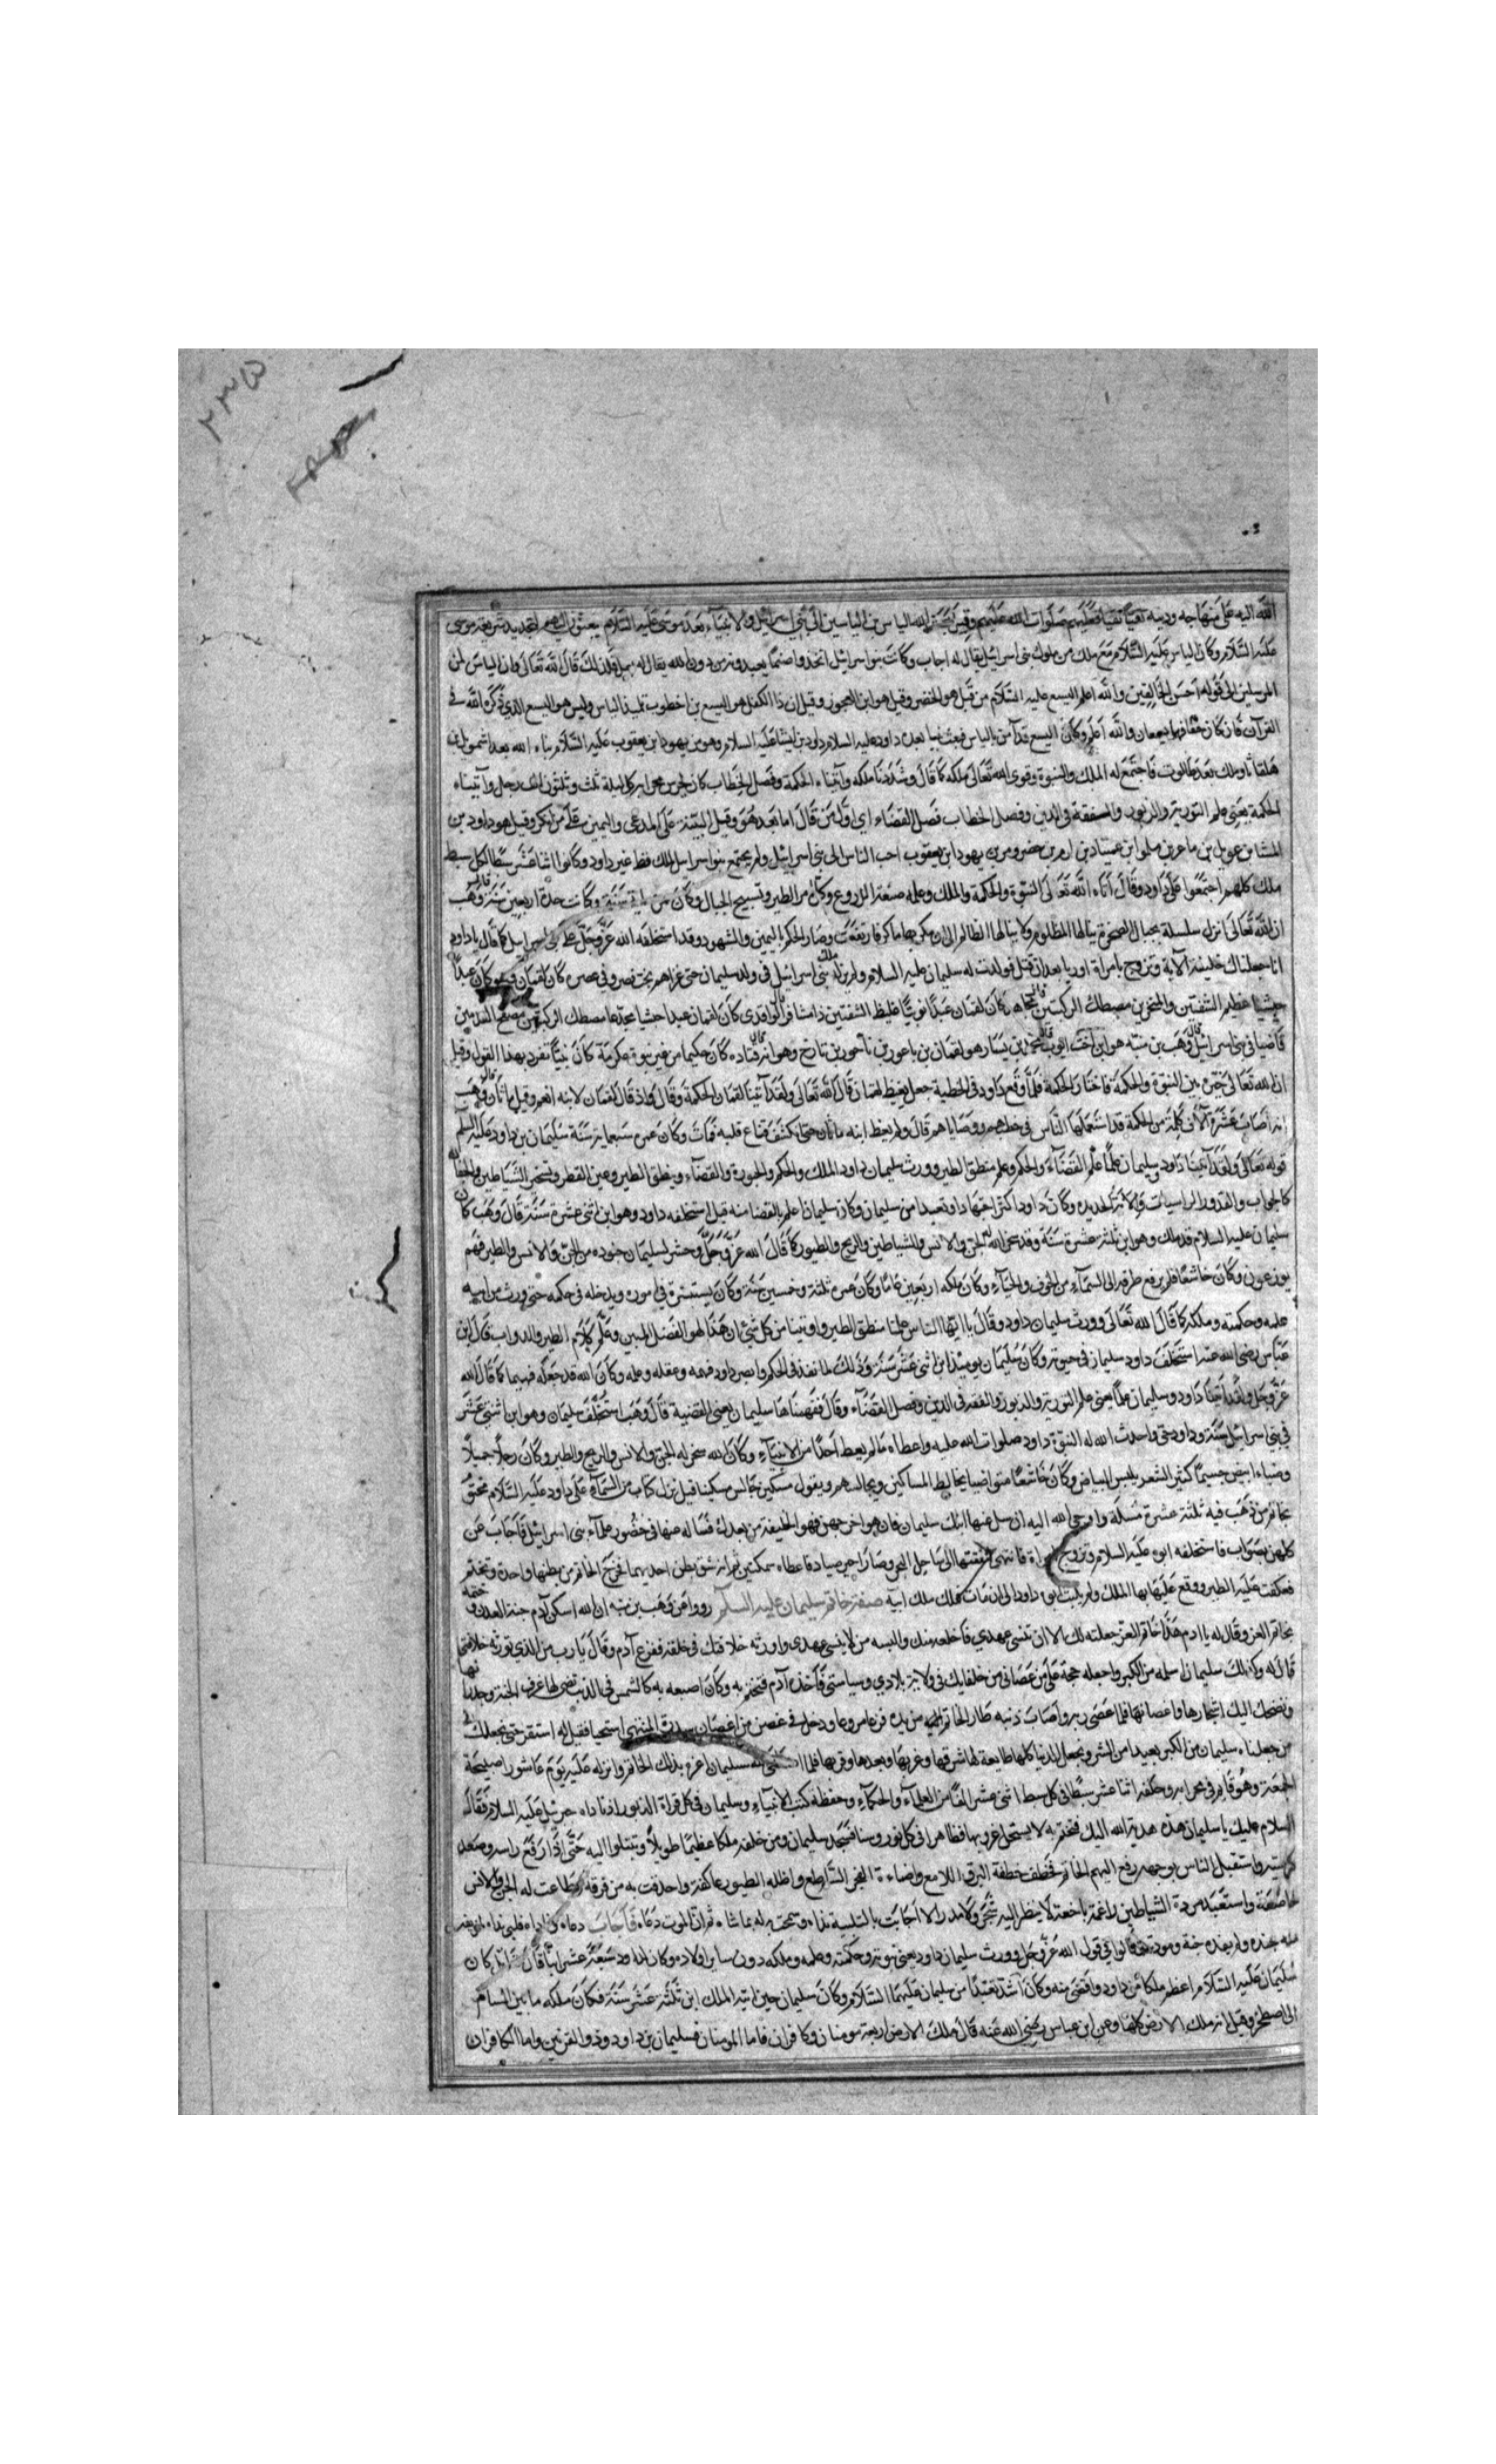 ٢٣٥
الله اليه على منهاجه ودينه صلوات الله عليهم الياس بن الياسين الى بنى اسرائيل بعد موسى عليه السلام يبعثون اليهم
عليه السلام وكان الياس عليه السلام مع ملك من ملوك بنى اسرائيل يقال له اجاب وكانت بنوا اسرائيل اتخذوا صنما يعبدونه من دون الله يقال له بعل فلذلك قال الله تعالى وان الياس لمن
المرسلين الى قوله احسن الخالقين والله اعلم اليسع عليه السلام من قبل هو الخضر وقيل هو ابن العجوز وقيل ان ذا الكفل هو اليسع بن اخطوب تلميذ الياس وليس هو اليسع الذي ذكره الله في
القرآن فان كان والله اعلم وكان اليسع قد آمن بالياس فبعث نبيا بعد داود عليه السلام داود بن ايشا عليه السلام وهو من يهودا بن يعقوب عليه السلام الله بعد اشمويل
وملك بعد طالوت فاجتمع له الملك والنبوة وقوى الله تعالى ملكه كما قال وشددنا ملكه وآتيناه الحكمة وفصل الخطاب كان يحرس محرابه كل ليلة ثلث وثلثون الف رجل وآتيناه
الحكمة يعنى علم التورية والزبور والفقه في الدين وفصل الخطاب فصل القضاء اي اول من قال اما بعد هو وقيل البينة على المدعى واليمين على من انكر وقيل هو داود بن
ايشا بن عوبل بن باعر بن سلموا بن ارم بن حضرون بن يهودا بن يعقوب احب الناس الى بنى اسرائيل ولم يجتمع بنوا اسرائيل لملك قط غير داود وكانوا اثنا عشر سبطا لكل سبط
ملك كلهم اجتمعوا على داود وقال آتاه الله تعالى النبوة والحكمة والملك وعلمه صنعة الدروع وكلام الطير وتسبيح الجبال وكان سنة وكانت مدة اربعين سنة قال وهب
ان الله تعالى انزل سلسلة بحبال الصخرة ينالها المظلوم ولا ينالها الظالم الى ان مكر بها ماكر فارتفعت وصار الحكم باليمين والشهود وقد استخلفه الله عز وجل على بنى اسرائيل كما قال يا داود
انا جعلناك خليفة الآية وتزوج بامراة اوريا بعد ان قتل فولدت له سليمان عليه السلام ولم يزل ملك بنى اسرائيل فى ولد سليمان حتى غزاهم بخت نصر وفى عصره كان لقمان وهو كان عبدا
حبشيا عظيم الشفتين والمنخرين مصطك الركبتين قال مجاهد كان لقمان عبدا نوبيا غليظ الشفتين ذا مشافر قال الواقدى كان لقمان عبدا حبشيا مصطك الركبتين مصفح القدمين
قاضيا فى بنى اسرائيل قال وهب بن منبه هو ابن اخت ايوب قال محمد بن يسار هو لقمان بن باعور بن ناحور بن تارخ وهو آزر قال قتاده كان حكيما من غير نبوة عكرمة كان نبيا تفرد بهذا القول وقيل
ان الله تعالى خيره بين النبوة والحكمة فاختار الحكمة فلما وقع داود فى الخطية جعل يعظ لقمان قال الله تعالى ولقد آتينا لقمان الحكمة وقال واذ قال لقمان لابنه انعم وقيل ماثان قال وهب
انه اصاب عشرة آلاف كلمة من الحكمة قد استعملها الناس فى خطبهم ووصاياهم قال ولم يعظ ابنه ماثان حتى كشف قناع قلبه فمات وكان عمره سبعماية سنة سليمان بن داود عليه السلام
قوله تعالى ولقد آتينا داود وسليمان علما علم القضاء والحكم وعلم منطق الطير وورث سليمان داود الملك والحكم والحبورة والقضاء ومنطق الطير وعين القطر وتسخير الشياطين والجفان
كالجواب والقدور الراسيات والانة الحديد وكان داود اكثر اجتهادا وتعبدا من سليمان وكان سليمان اعلم بالقضا منه قيل استخلفه داود وهو ابن اثنى عشرة سنة قال وهب كان
سليمان عليه السلام قد ملك وهو ابن ثلث عشرة سنة وقد سخر الله له الجن والانس والشياطين والريح والطيور كما قال الله عز وجل وحشر لسليمان جنوده من الجن والانس والطير فهم
يوزعون وكان خاشعا فلم يرفع طرفه الى السماء من الخوف والحياء وكان ملكه اربعين عاما وكان عمره ثلثة وخمسين سنة وكان يستشيره فى اموره ويدخله فى حكمه حتى ورث من ابيه
علمه وحكمته وملكه كما قال الله تعالى وورث سليمان داود وقال يا ايها الناس علمنا منطق الطير واوتينا من كل شئ ان هذا لهو الفضل المبين وعلم كلام الطير والدواب قال ابن
عباس رضى الله عنه استخلف داود سليمان فى حيوته وكان سليمان يومئذ ابن اثنى عشر سنة وذلك لما نفذ فى الحكم وابصر داود فهمه وعقله وعلمه وكان الله قد جعله فهيما كما قال الله
عز وجل ولقد آتينا داود وسليمان علما يعنى علم التورية والزبور والفقه فى الدين وفصل القضاء وقال ففهمناها سليمان يعنى القضية قال وهب استخلف سليمان وهو ابن اثنى عشر
فى بنى اسرائيل سنة وداود حى واحدث الله له النبوة داود صلوات الله عليه واعطاه ما لم يعط احدا من الانبياء وكان الله سخر له الجن والانس والريح والطير وكان رجلا جميلا
وضياء ابيض جسيما كثير الشعر يلبس البياض وكان خاشعا متواضعا يخالط المساكين ويجالسهم ويقول مسكين جالس مسكينا قيل نزل كتاب من السماء على داود عليه السلام مختوم
بخاتم من ذهب فيه ثلثة عشرة مسئلة واوحى الله اليه ان سل عنها ابنك سليمان فان هو اخرجهن فهو الخليفة من بعدك فساله عنها فى حضور علماء بنى اسرائيل فاجاب عن
كلهن بصواب فاستخلفه ابوه عليه السلام وتزوج امراة فانتهى الى ساحل البحر وصار اجير صياد فاعطاه سمكتين ثم انه شق بطن احديهما فخرج الخاتم من بطنها واخذه وتختم
فعكفت عليه الطير ووقع عليه بها الملك ولم يلبث ابوه داود الى ان مات فملك ملك ابيه صفة خاتم سليمان عليه السلام رووا عن وهب بن منبه ان الله اسكن آدم جنة العدن وختمه
بخاتم العز وقال له يا ادم هذا خاتم العز جعلته لك الا ان تنسى عهدي فاخلعه منك والبسه من لا ينسى عهدى واورثه خلافتك فى خلقه ففزع آدم وقال يا رب من الذي تورثه خلافتى
قال له ولذلك سليمان سلمه من الكبر واجعله حجة على من عصانى من خلفايك فى ولاية بلادي وسياستى فاخذه آدم فتختم به وكان اصبعه به كالشمس فى الدنيا تضى لها غرف الجنة وجدنا
وتضحك اليك اشجارها واغصانها فلما عصى ربه واصاب ذنبه طار الخاتم من يده فزعا مرعوبا ودخل فى غصن من اغصان سدرة المنتهى استحيا فقيل له استقر حتى نجعلك
من جعلناه سليمان من الكبر بعيدا من الشر ونجعل الدنيا كلها طايعة لها شرقها وغربها وبعدها وقربها فلما الله سليمان اعزه بذلك الخاتم وانزله عليه يوم عاشورا صبيحة
الجمعة وهو قايم فى محرابه وخلفه اثنا عشر سبطا فى كل سبط اثنى عشر الفا من العلماء والحكماء وحفظة كتب الانبياء وسليمان فى كل قراة الزبور اذ ناداه جبرئيل عليه السلام فقال
السلام عليك يا سليمان هذه هدية الله اليك فتختم به لا يستحل غروبها فظاهر فى كل نور وسنا فسجد سليمان ومن خلفه ملكا عظيما طويلا وتبتلوا اليه حتى اذا رفع راسه وصعد
واستقبل الناس بوجهه رفع اليهم الخاتم فخطف خطفة البرق اللامع واضاءة الفجر الساطع واظله الطيور عاكفة واحدقت به من فرقه واطاعت له الجن والانس
خاضعة واستعبد مردة الشياطين راغمة باخعة لا ينظر اليه شجر ولا مدر الا اجابت بالتلبية نداءه ثم ان الموت دعاه فاجاب دعاه
جنده ولم يعده وموته قالوا فى قول الله عز وجل وورث سليمان داود يعنى نبوته وحكمته وعلمه وملكه دون ساير اولاده وكان لداود تسعة عشر ابنا قال كان
سليمان عليه السلام اعظم ملكا من داود واقضى منه وكان اشد تعبدا من سليمان عليهما السلام وكان سليمان حين اتيه الملك ابن ثلثة عشر سنة فكان ملكه ما بين الشام
الى اصطخر وقيل انه ملك الارض كلها وعن ابن عباس رضى الله عنه قال ملك الارض اربعة مومنان وكافران فاما المومنان فسليمان بن داود وذو القرنين واما الكافران